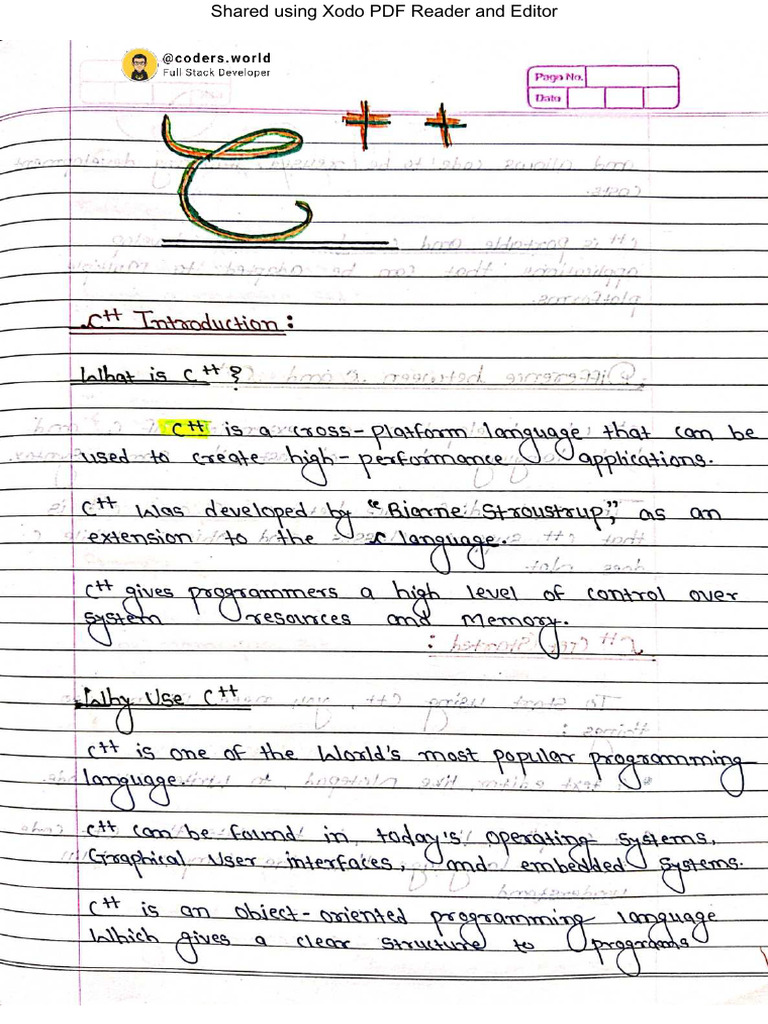 Shared using Xodo PDF Reader and Editor
@coders.world
Full Stack Developer
Page No.
Date
C++
C++ Introduction:
What is C++?
C++ is a cross-platform language that can be
used to create high-performance applications.
C++ was developed by "Bjarne Stroustrup," as an
extension to the C language.
C++ gives programmers a high level of control over
system resources and Memory.
Why Use C++
C++ is one of the World's most popular programming
language.
C++ can be found in today's operating systems,
Graphical User interfaces, and embedded systems.
C++ is an object-oriented programming language
Which gives a clear structure to programs